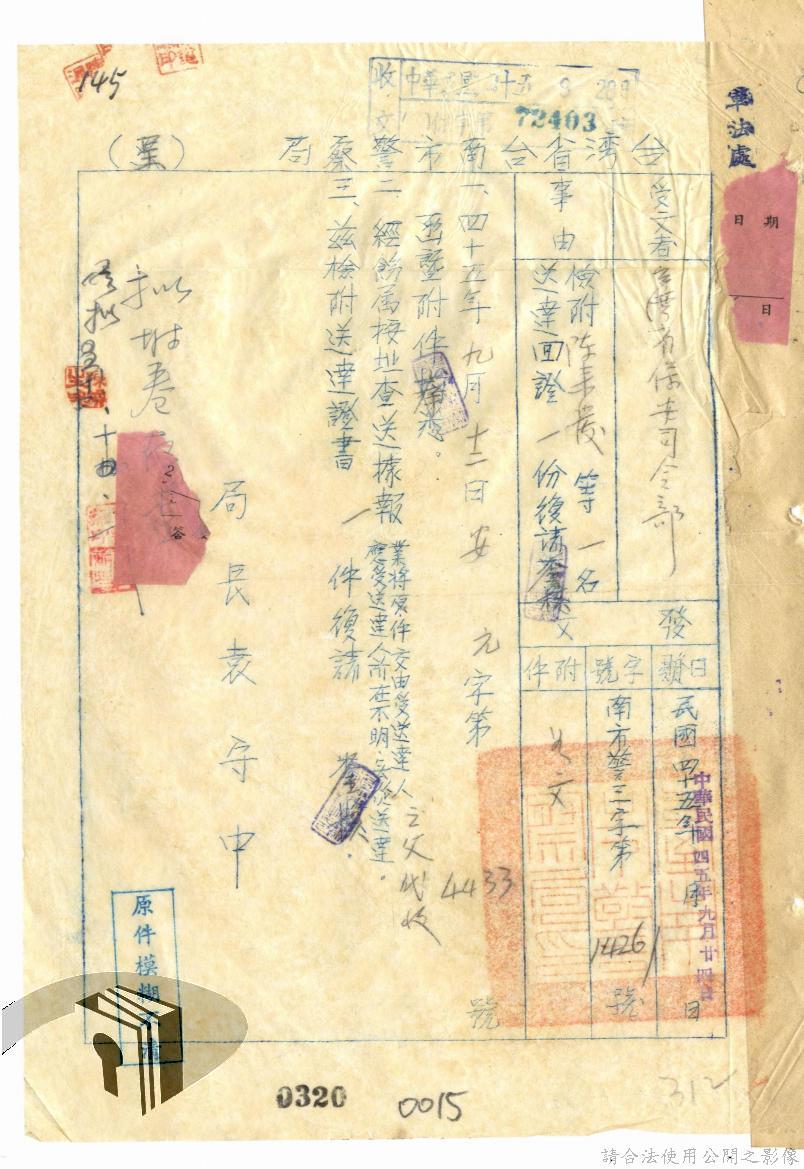 145
收文
中華民國45 9 20
72403
軍法處
期
日
日
台灣省台南市警察局
(業)
受文者
台灣省保安司令部
事由
檢附陳來發等一名
送達回證一份復請查核
發文
日期
民國四十五年 月 日
中華民國四五年九月廿四日
字號
南市警三字第14261號
附件
如文
一、四十五年九月十二日安元字第4433號函暨附件奉悉。
二、經飭屬按址查送據報
業將原件交由受送達人之父代收
應受送達人所在不明無從送達。
三、茲檢附送達證書一件復請
局長袁守中
擬附卷
原件模糊不清
0320
0015
312
請合法使用公開之影像